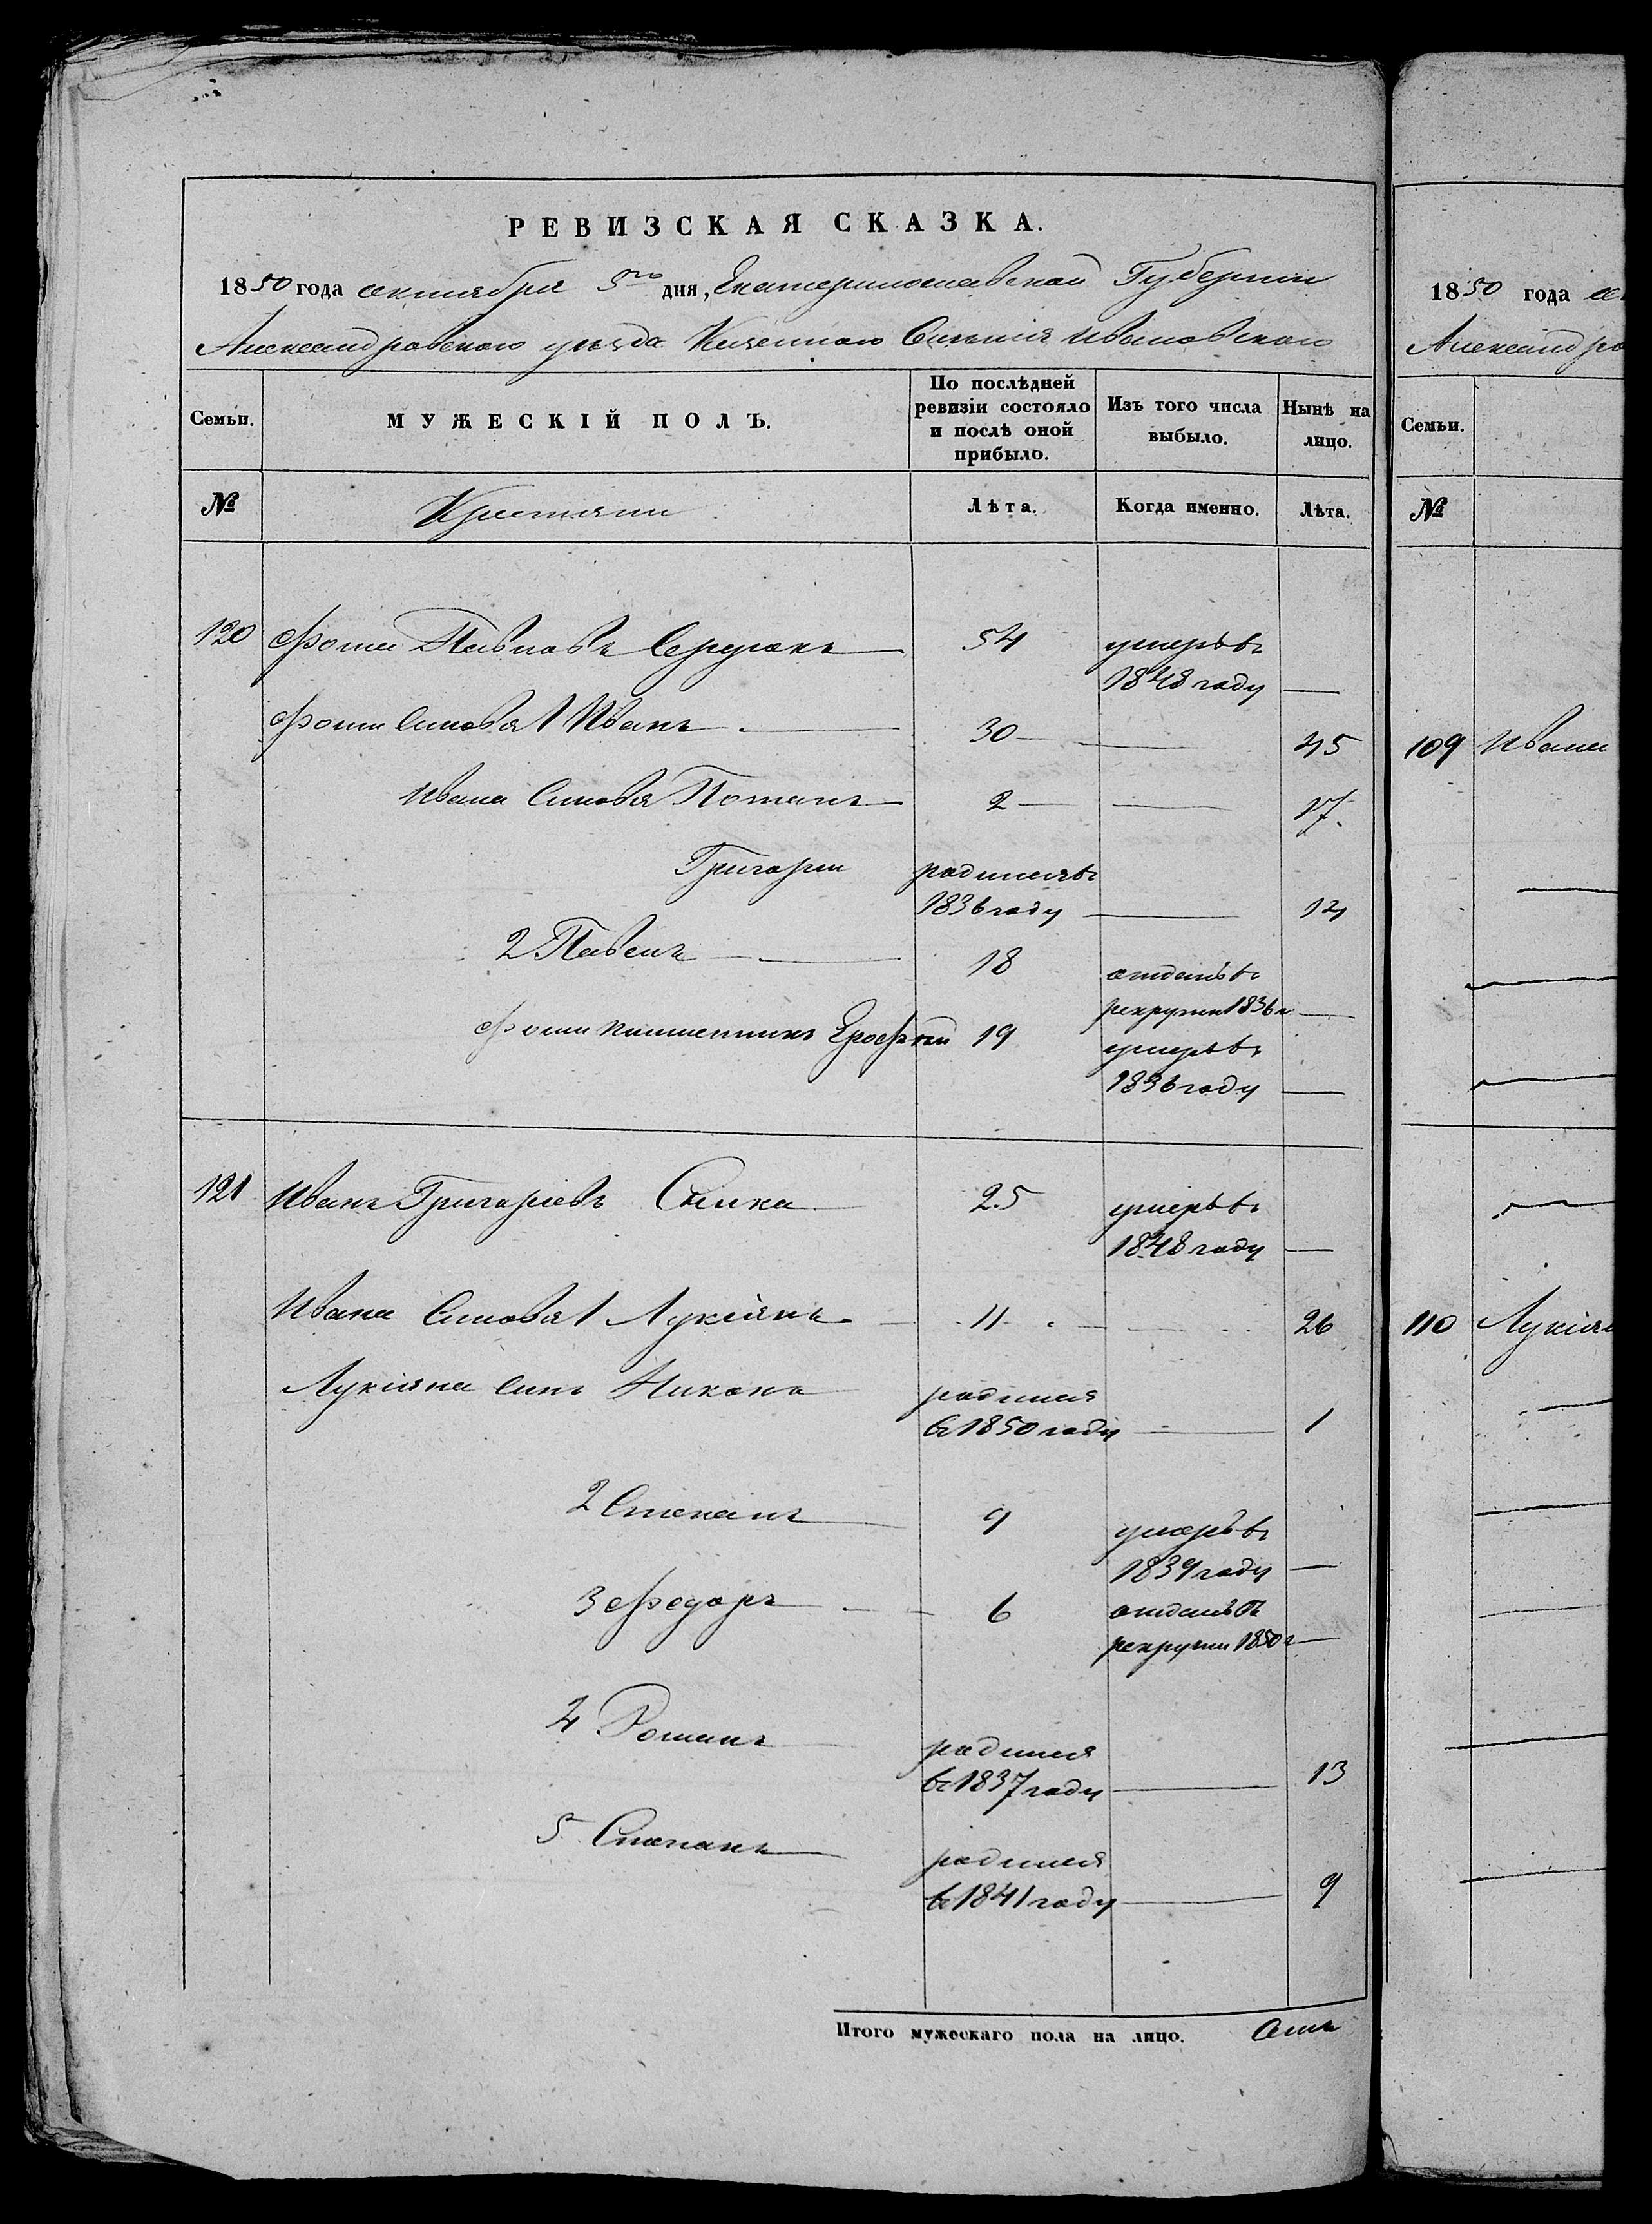 РЕВИЗСКАЯ СКАЗКА.
1850 года октября 5го дня, Екатеринославской Губернии
Александровского уезда Казенного Селения Ивановского
Семьи.
МУЖЕСКІЙ ПОЛЪ.
По послѣдней ревизіи состояло и послѣ оной прибыло.
Изъ того числа выбыло.
Нынѣ на лицо.
№
Крестяни
Лѣта.
Когда именно.
Лѣта.
120 Фома Павловъ 54 умеръ въ
1848 году —
Фоми Синовя 1 Иванъ 30 — 45
Ивана Синовя Потапъ 2 — 17
Григории родился въ
1836 году — 14
2 Павелъ 18 отданъ въ
рекрути 1836 г —
Фоми племенникъ Ерофѣй 19 умеръ въ
1836 году —
121 Иванъ Григориевъ 25 умеръ въ
1848 году —
Ивана Синовя 1 Лукіянъ 11 — 26
Лукіяна Синъ Никонъ родился
въ 1850 году — 1
2 Степанъ 9 умеръ въ
1839 году —
3 Федоръ 6 отданъ въ
рекрути 1850 г —
4 Романъ родился
въ 1837 году — 13
5 Степанъ родился
въ 1841 году — 9
Итого мужескаго пола на лицо. Семъ
1850 года
Александро
Семьи.
№
109 Ивана
110 Лукіян